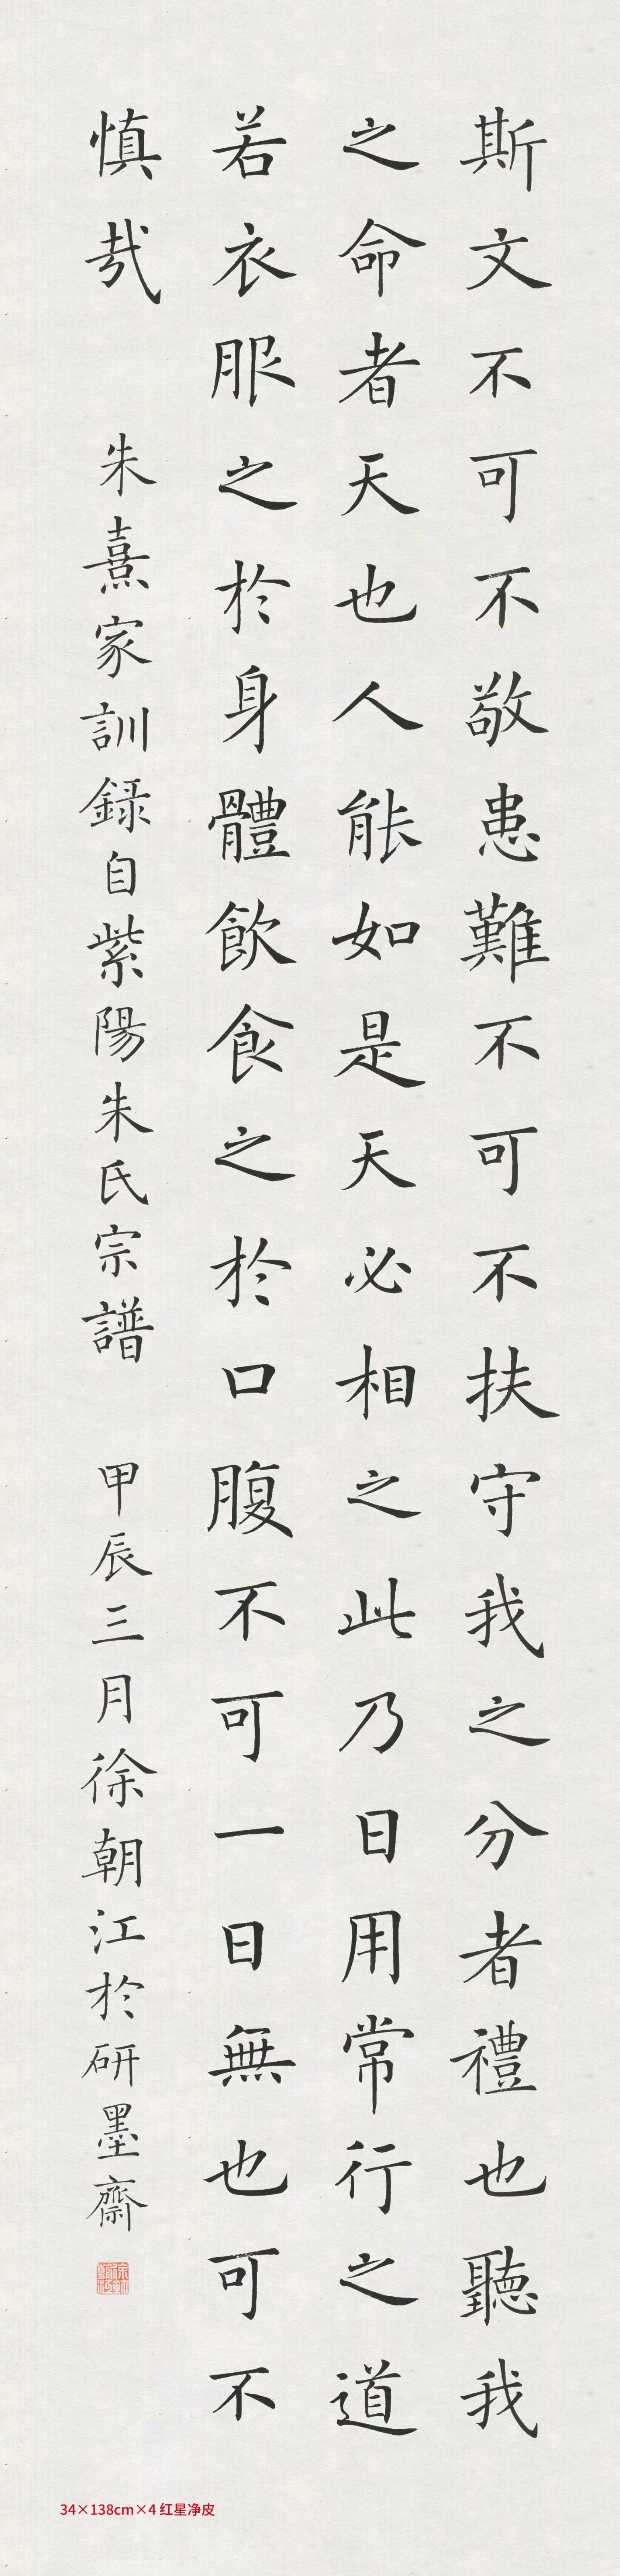 斯文不可不敬患難不可不扶守我之分者禮也聽我
之命者天也人能如是天必相之此乃日用常行之道
若衣服之於身體飲食之於口腹不可一日無也可不
慎哉
朱熹家訓録自紫陽朱氏宗譜
甲辰三月徐朝江於研墨齋
34×138cm×4 红星净皮